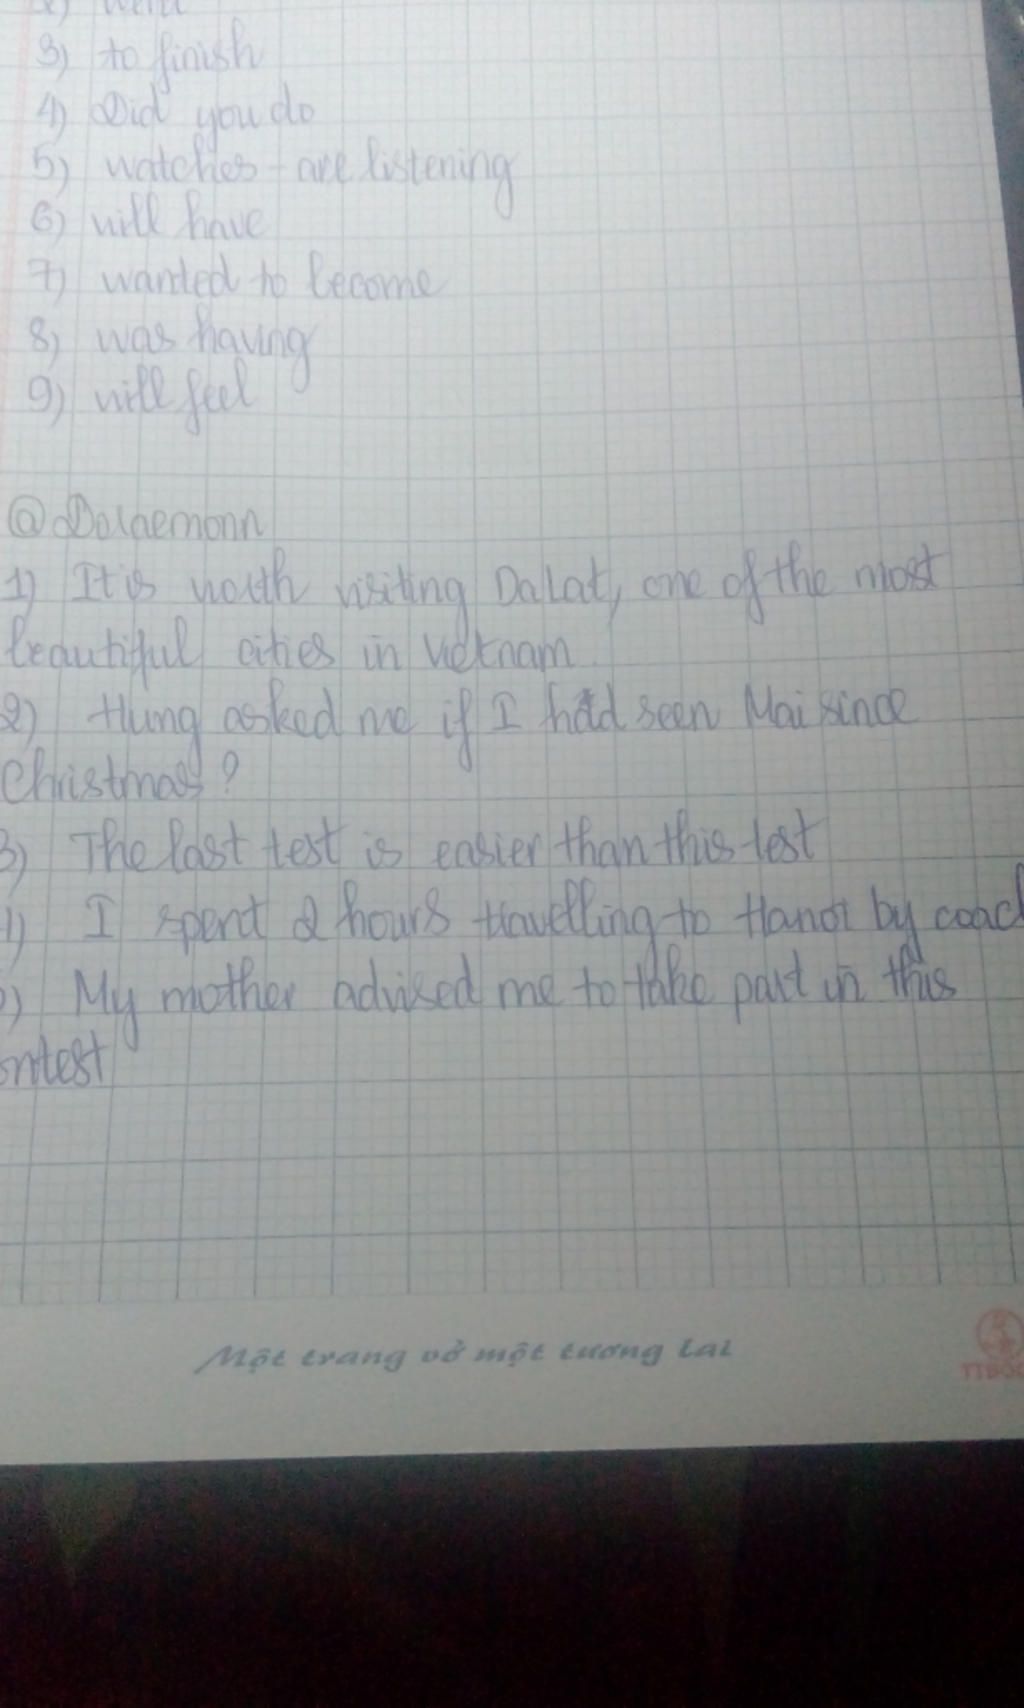 3) to finish
4) Did you do
5) watches - are listening
6) will have
7) wanted to become
8) was having
9) will feel
@Dolaemonn
1) It is worth visiting DaLat, one of the most
beautiful cities in Vietnam.
2) Hung asked me if I had seen Mai since
Christmas?
3) The last test is easier than this test
I spent 2 hours travelling to Hanoi by coach
My mother advised me to take part in this
ontest
Một trang vở một tương lai